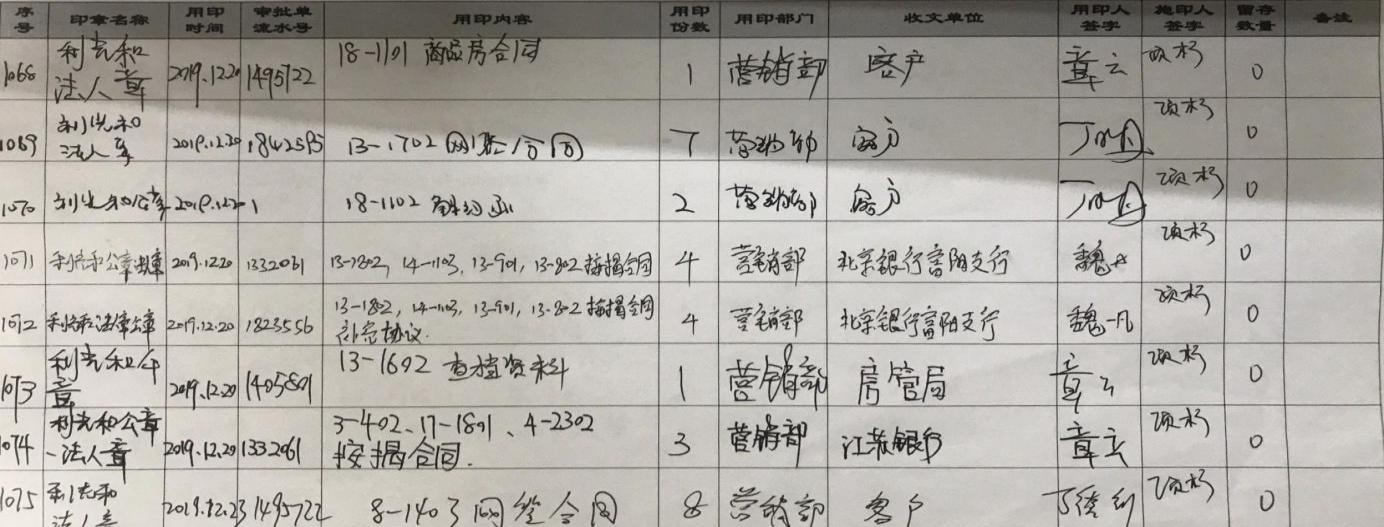 序号 印章名称 用印时间 审批单流水号 用印内容 用印份数 用印部门 收文单位 用印人签字 施印人签字 留存数量 备注
1068 利光和法人章 2019.12.20 1495722 18-1101 商品房合同 1 营销部 客户 章云 项杉 0
1069 利光和法人章 2019.12.20 1842595 13-1702 网签合同 7 营销部 客户 项杉 0
1070 2019.12.20 1 18-1102 2 营销部 客户 项杉 0
1071 2019.12.20 1332061 13-1802, 14-1103, 13-901, 13-802 按揭合同 4 营销部 北京银行富阳支行 魏 项杉 0
1072 2019.12.20 1823556 13-1802, 14-1103, 13-901, 13-802 按揭合同
补充协议. 4 营销部 北京银行富阳支行 魏一凡 项杉 0
1073 利光和公章 2019.12.20 1405801 13-1602 查档资料 1 营销部 房管局 章云 项杉 0
1074 利光和公章、法人章 2019.12.20 1332061 3-402、17-1801、4-2302
按揭合同. 3 营销部 江苏银行 章云 项杉 0
1075 利光和法人章 2019.12.23 1495722 8-1403 网签合同 8 营销部 客户 项杉 0